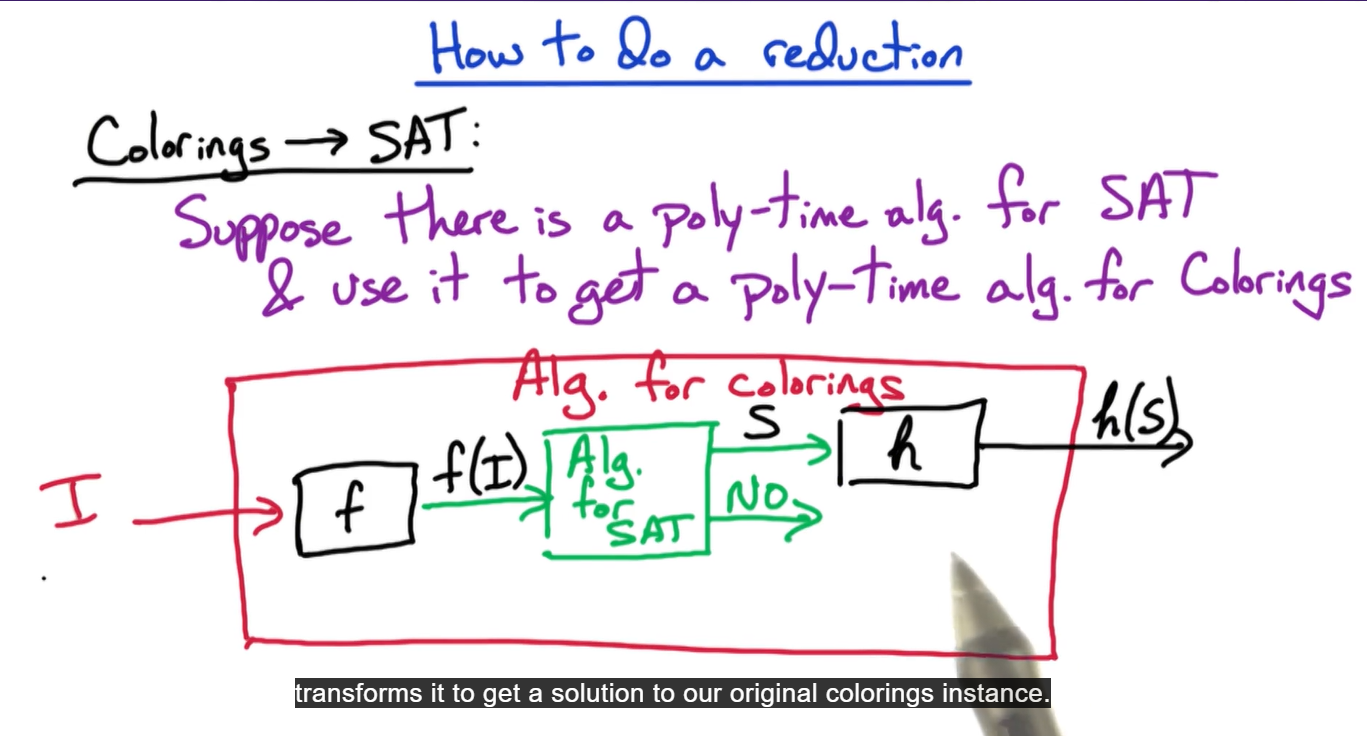 How to do a reduction
Colorings → SAT:
Suppose there is a poly-time alg. for SAT
& use it to get a poly-time alg. for Colorings
Alg. for colorings
I
f
f(I)
Alg.
for
SAT
S
NO
h
h(S)
transforms it to get a solution to our original colorings instance.